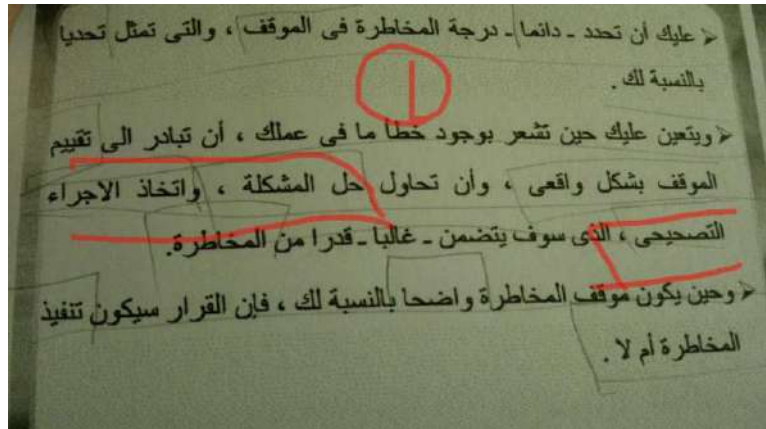 > عليك أن تحدد - دائما - درجة المخاطرة فى الموقف ، والتى تمثل تحديا
بالنسبة لك .
> ويتعين عليك حين تشعر بوجود خطأ ما فى عملك ، أن تبادر الى تقييم
الموقف بشكل واقعى ، وأن تحاول حل المشكلة ، واتخاذ الاجراء
التصحيحى ، الذى سوف يتضمن - غالبا - قدرا من المخاطرة.
> وحين يكون موقف المخاطرة واضحا بالنسبة لك ، فإن القرار سيكون تنفيذ
المخاطرة أم لا .